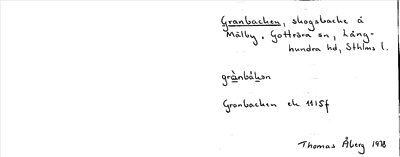 Granbacken, skogsbacke å
Mälby. Gottröra sn, Lång-
hundra hd, Sthlms l.
grànbákən
Granbacken ek 11I5f
Thomas Åberg 1978